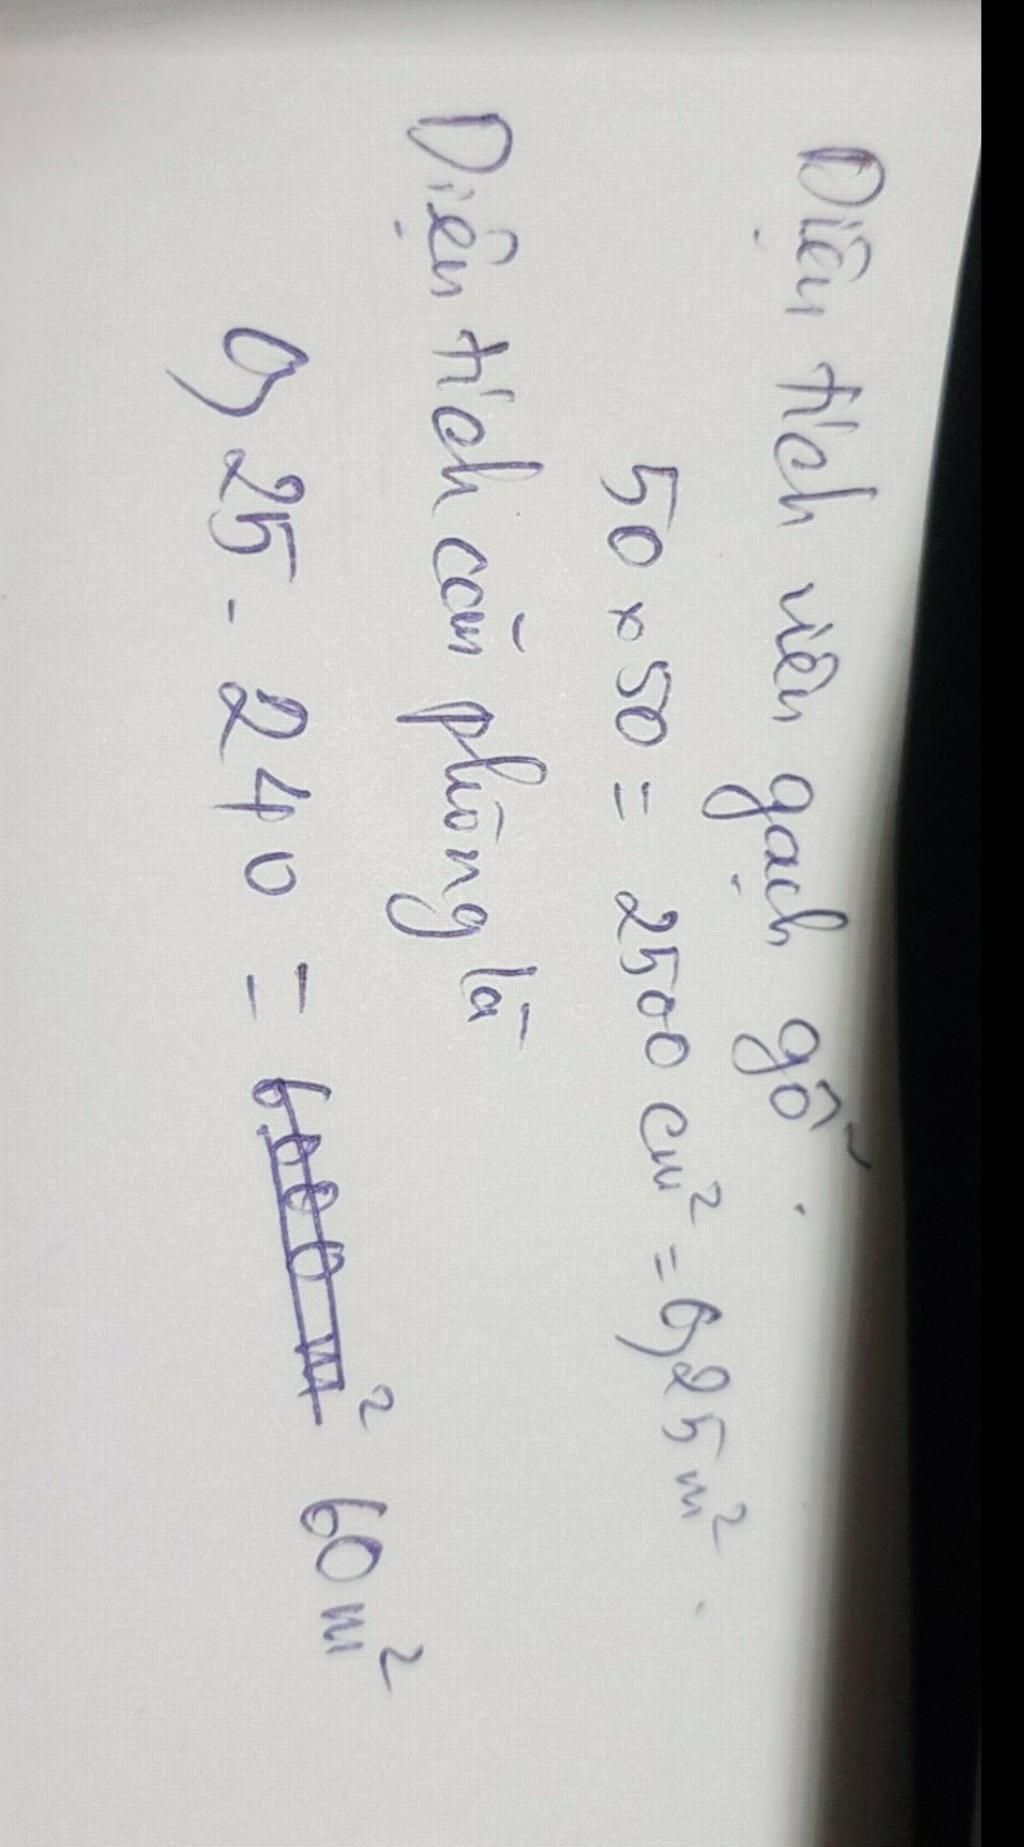 Diện tích viên gạch gỗ.
50 x 50 = 2500 cm² = 0,25 m².
Diện tích căn phòng là
0,25 - 240 = 6000 m² 60 m²